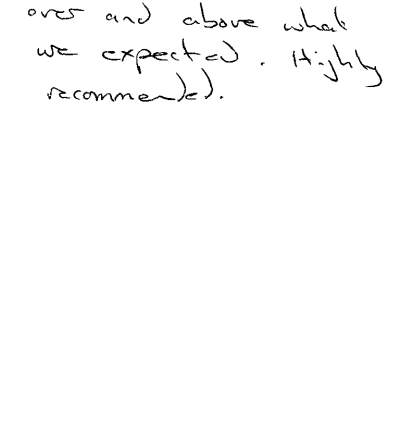 over and above what
we expected. Highly
recommended.